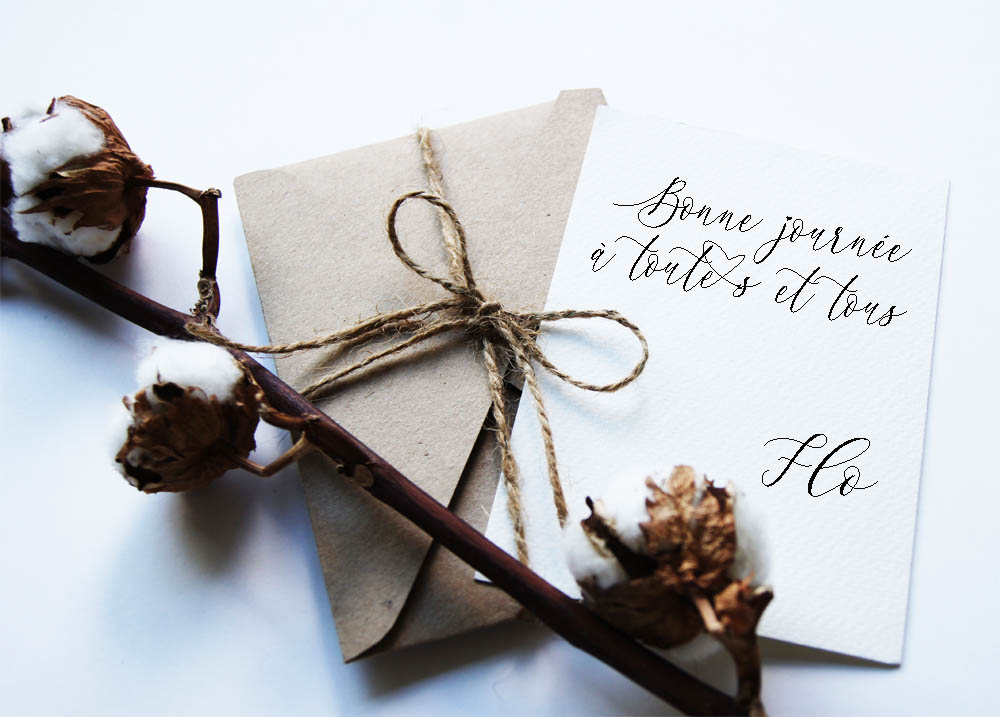 Bonne journée
à toutes et tous
Flo